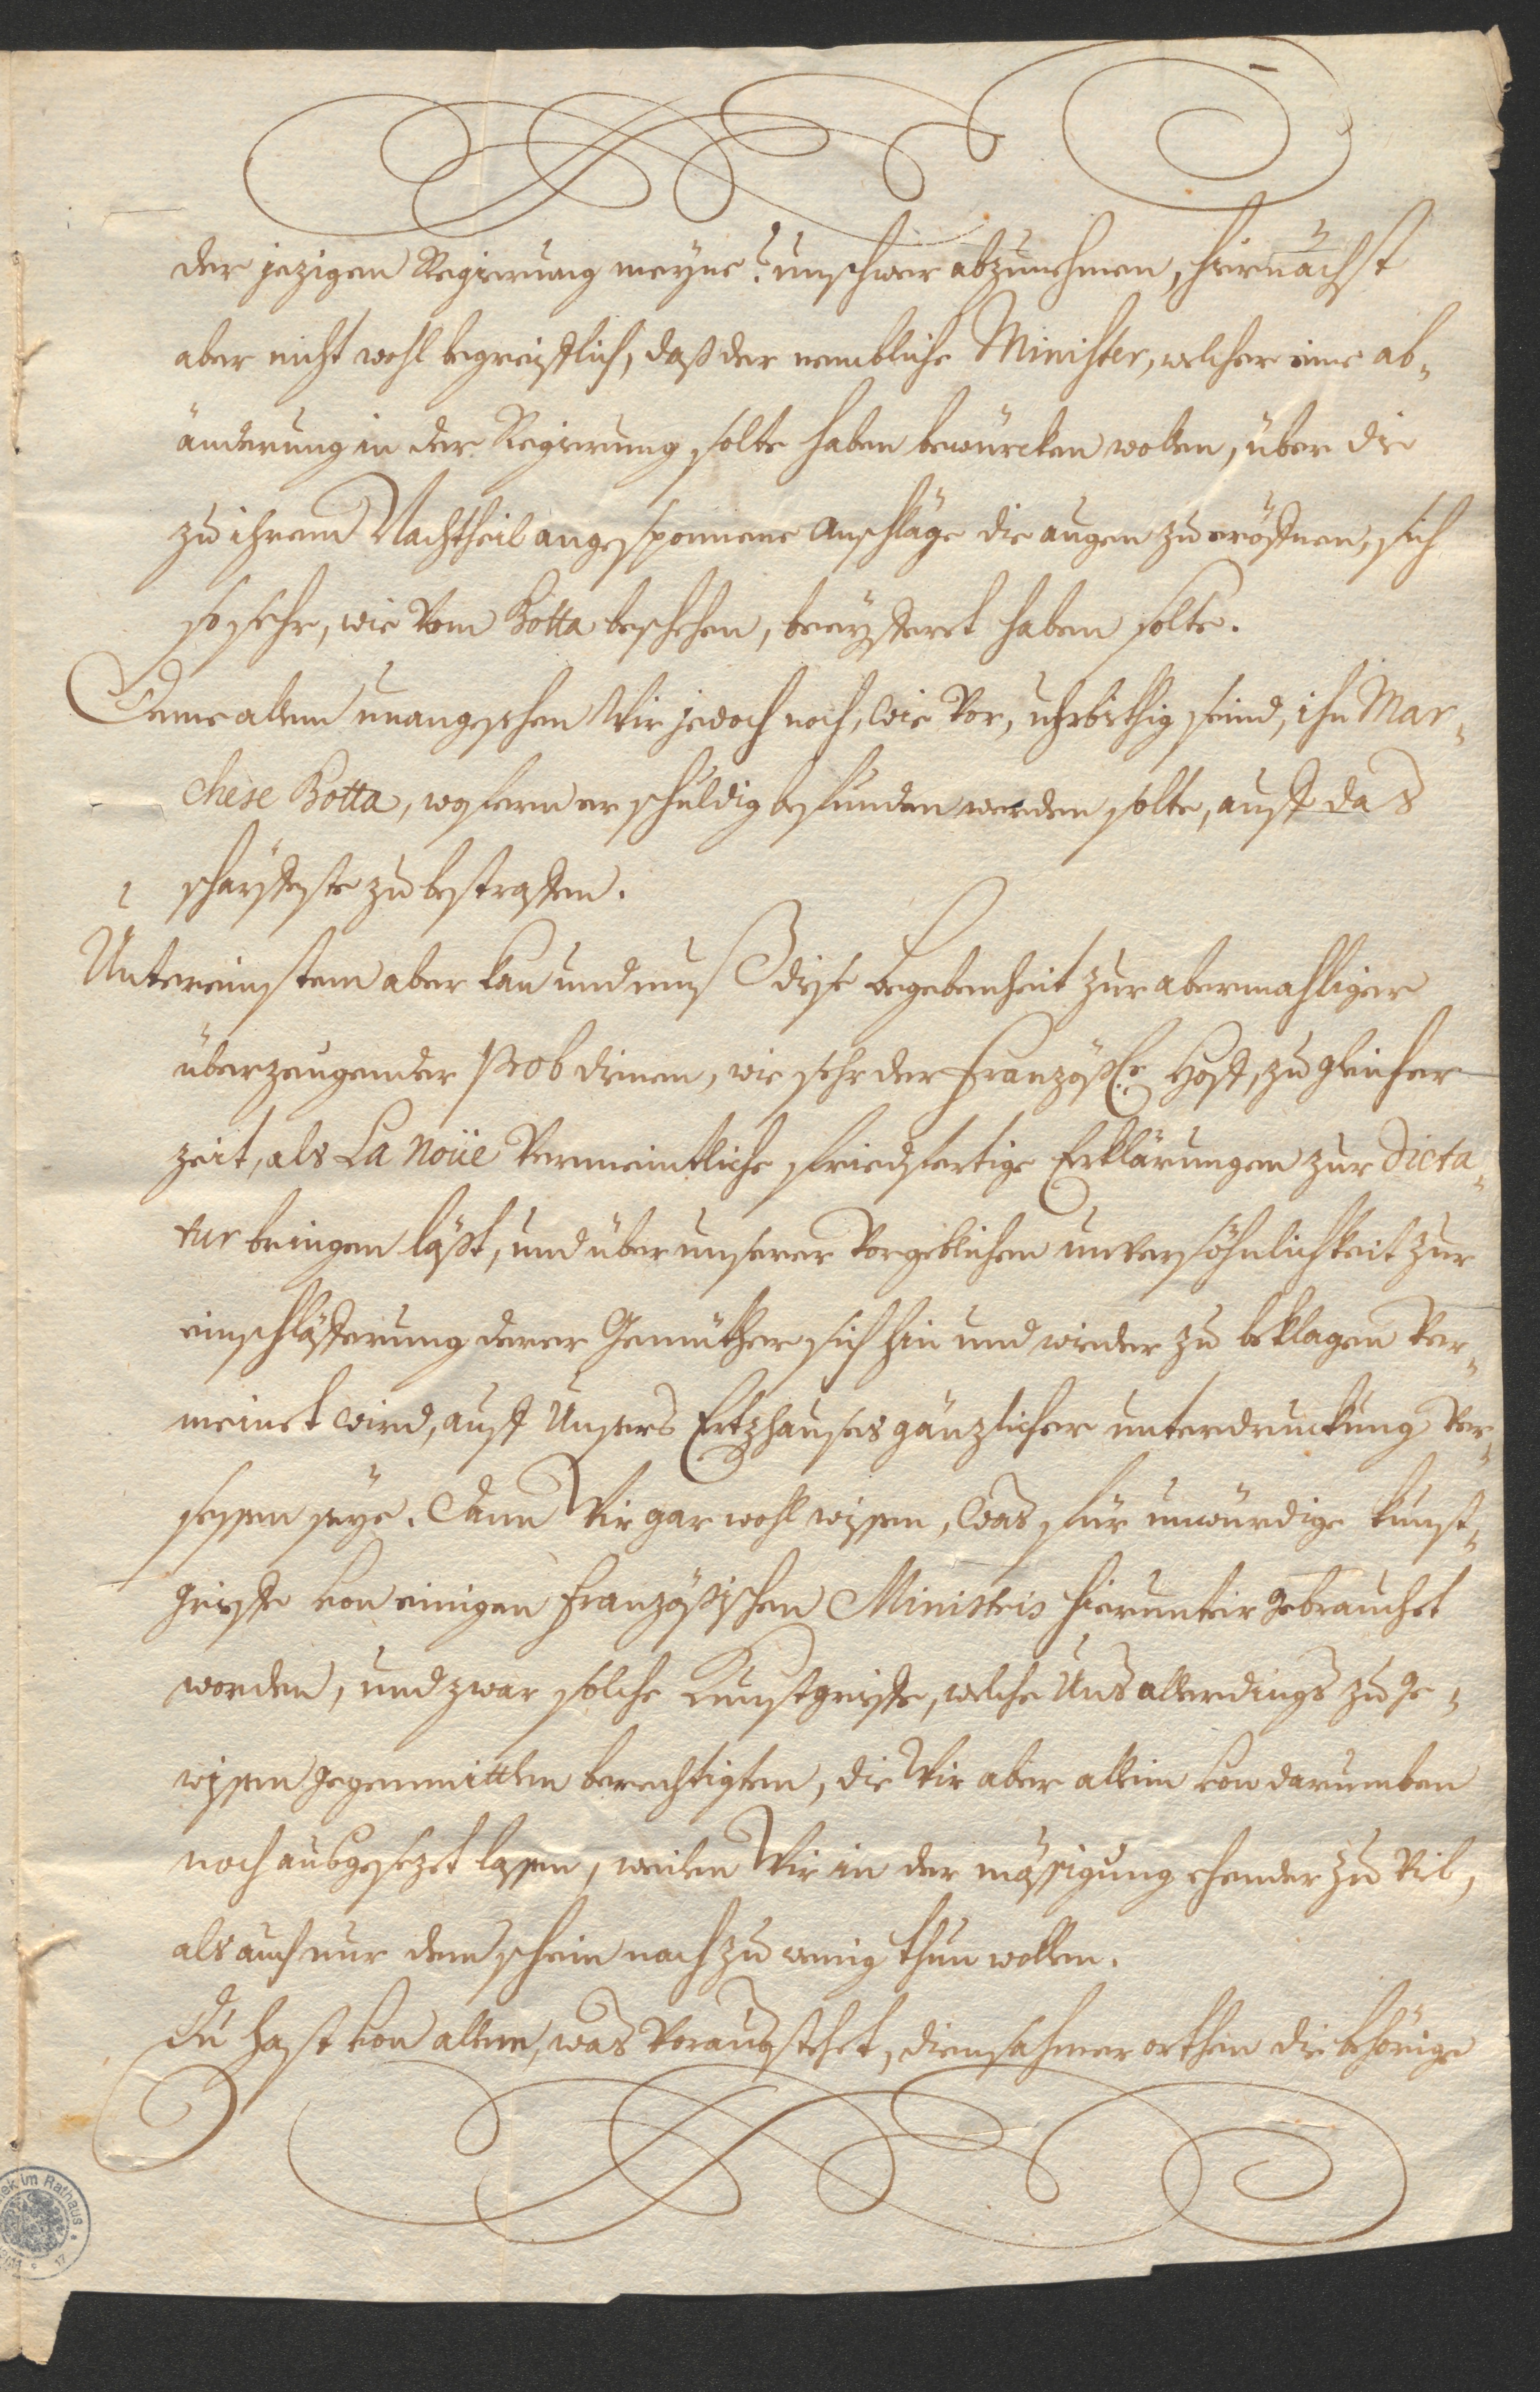 der jezigen Regierung meyne? unschwer abzunehmen, hiernächst
aber nicht wohl begreifflich, daß der nembliche Minister, welcher eine ab¬
änderung in der Regierung solte haben bewürcken wollen, über die
zu ihrem Nachtheil angesponnene Anschläge die augen zu eröffnen, sich
so sehr, wie vom Botta beschehen, beeyfferet haben solte.
Deme allem unangesehen Wir jedoch noch, wie vor, uhrbiethig seind, ihn Mar¬
chese Botta, wofern er schuldig befunden werden solte, auff das
schärffeste zu bestraffen.
Untereinstem aber kan und muß dise begebenheit zur abermahliger
überzeugender Prob dienen, wie sehr der französ.e Hoff, zu gleicher
zeit, als La Noüe vermeintliche fridfertige Erklärungen zur Dicta¬
tur bringen läßt, und über unserer vorgeblichen unversöhnlichkeit zur
einschläfferung derer Gemüther sich hin und wieder zu beklagen ver¬
meinet wird, auff Unsers Ertzhauses gänzlicher unterdruckung ver¬
sessen seye. Dann Wir gar wohl wissen, was für unwürdige kunst¬
griffe von einigen französischen Ministris hierunter gebrauchet
worden, und zwar solche Kunstgriffe, welche Uns allerdings zu ge¬
wissen gegenmittlen berechtigten, die Wir aber allein von darumben
noch ausgesezet lassen, weilen Wir in der mässigung ehender zu vil,
als auch nur dem schein nach zu wenig thun wollen.
Du hast von allem, was voraus stehet, diensahmer orthen die behörige
ek im Rathaus